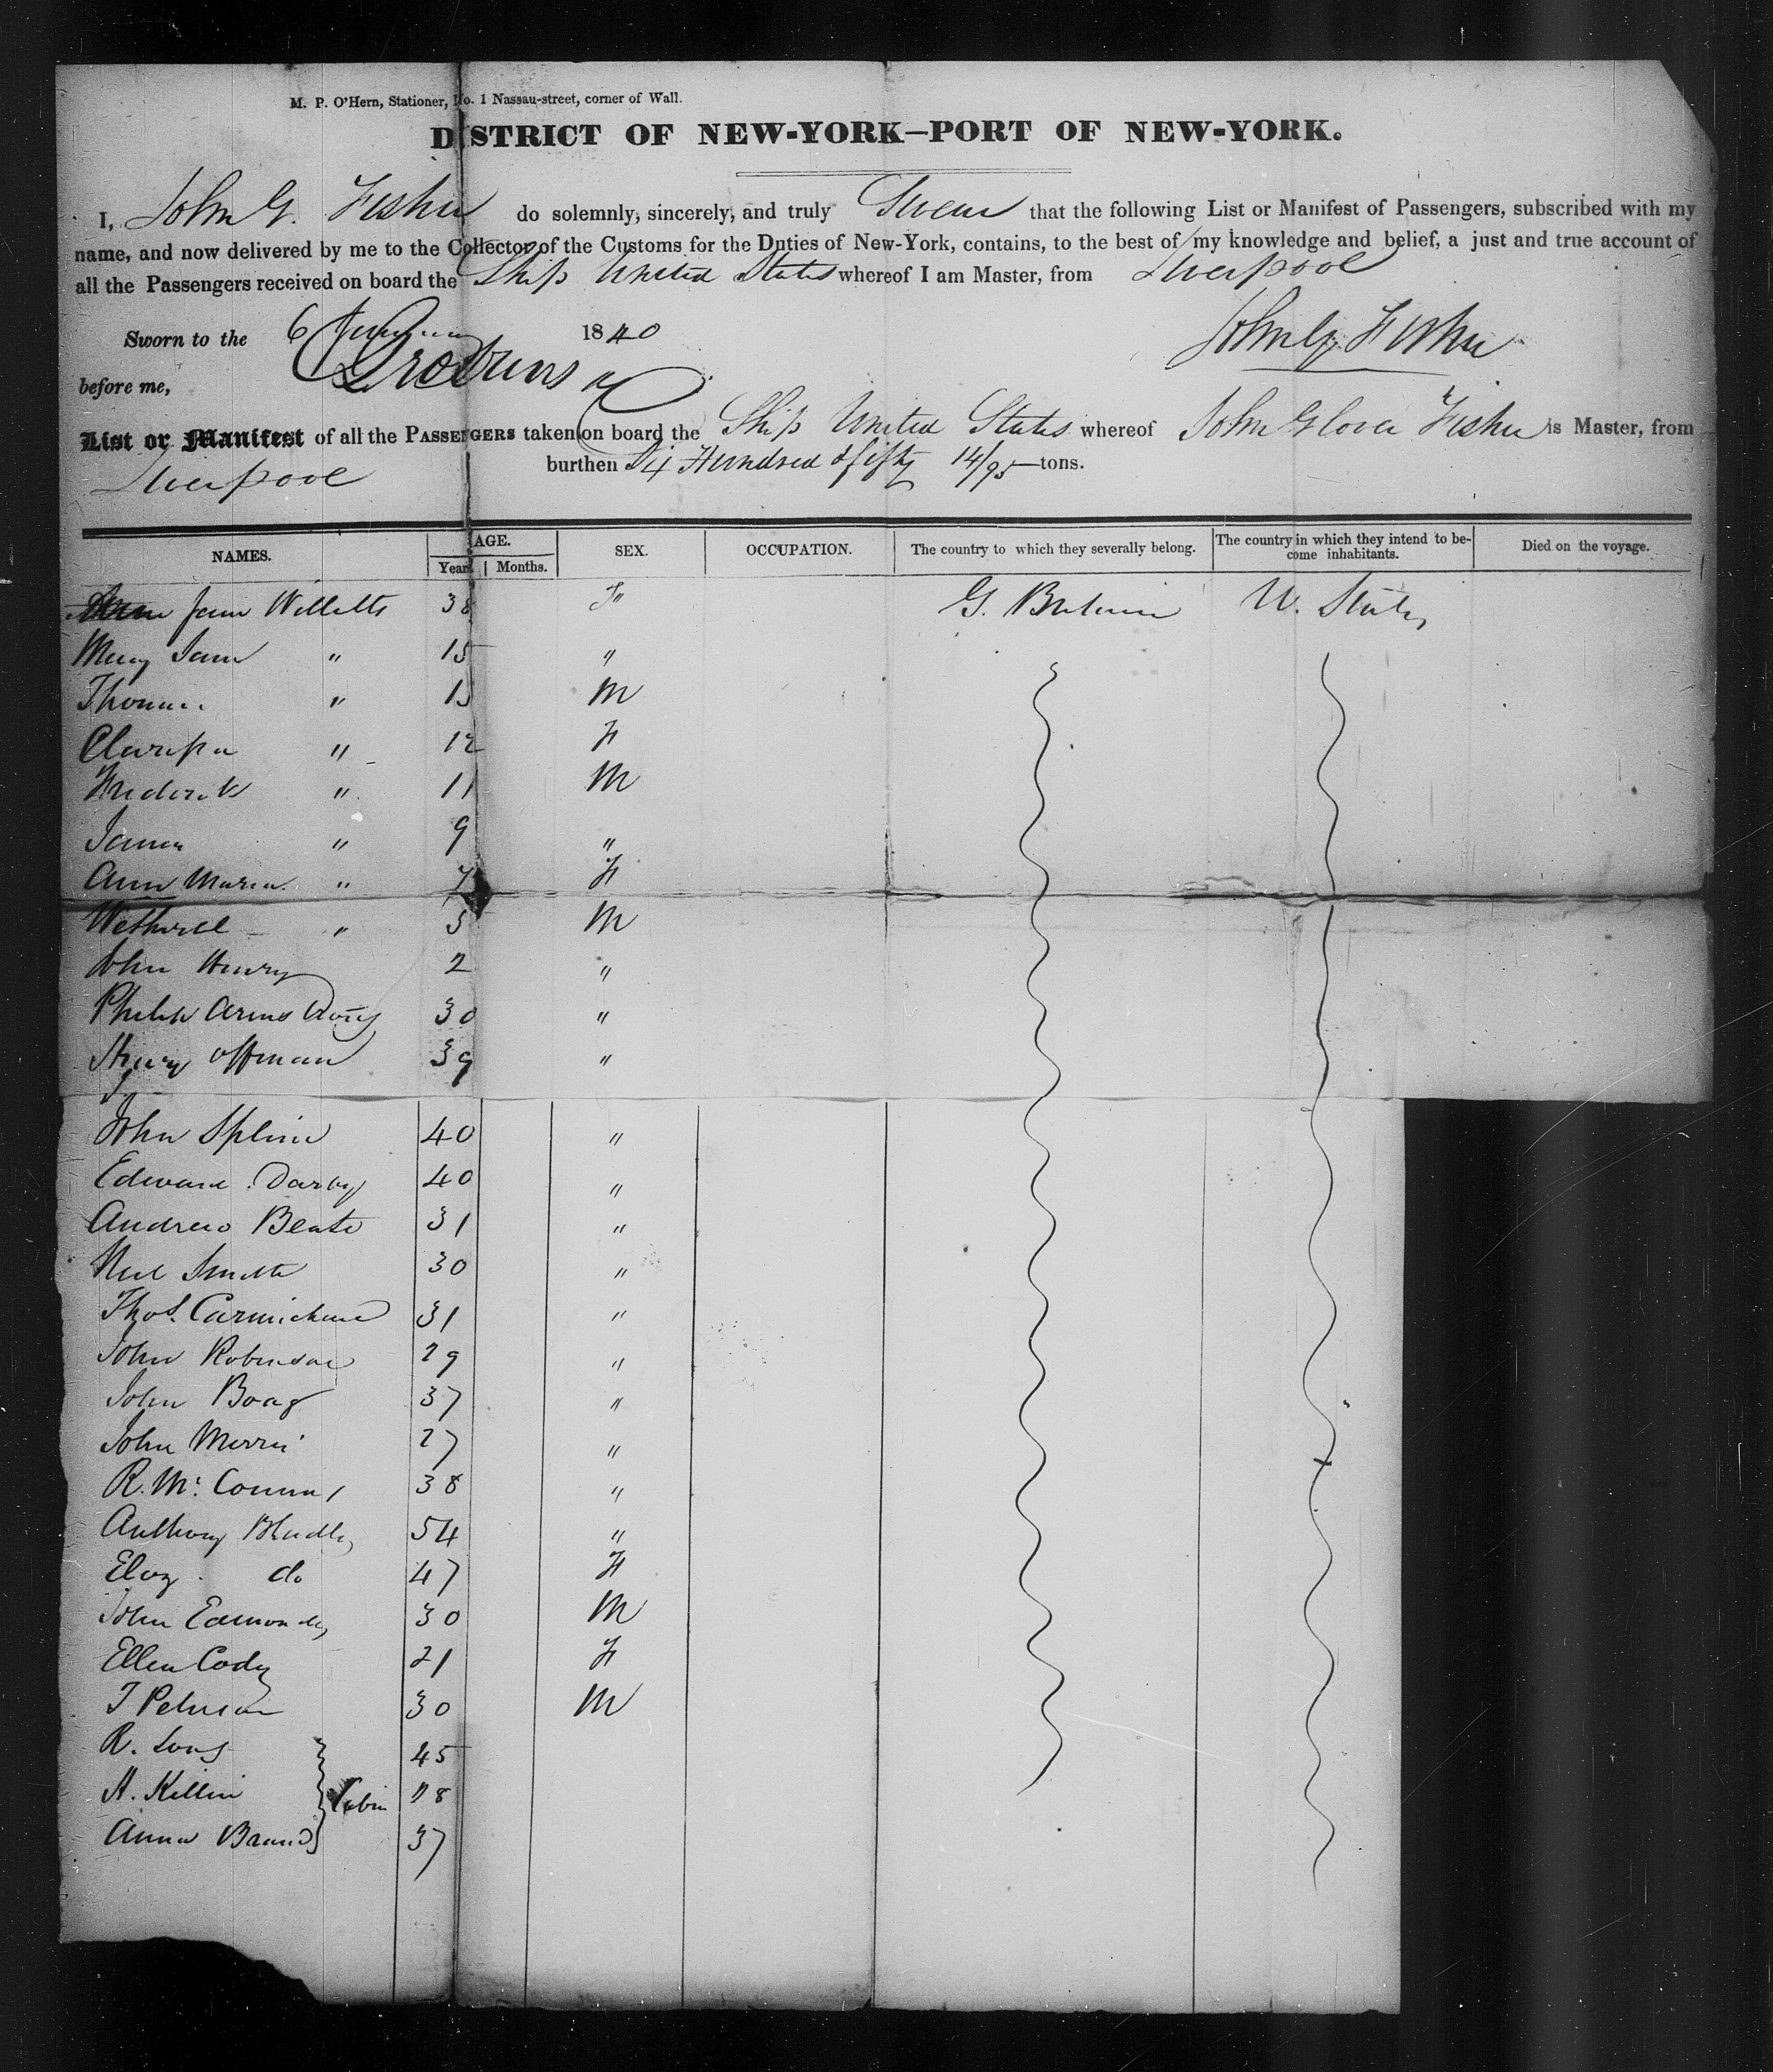 M. P. O'Hern, Stationer, No. 1 Nassau-street, corner of Wall.
DISTRICT OF NEW-YORK—PORT OF NEW-YORK.
I, John G. Fisher do solemnly, sincerely, and truly Swear that the following List or Manifest of Passengers, subscribed with my
name, and now delivered by me to the Collector of the Customs for the Duties of New-York, contains, to the best of my knowledge and belief, a just and true account of
all the Passengers received on board the Ship United States whereof I am Master, from Liverpool
Sworn to the 6 January 1840 John G. Fisher
before me,
List or Manifest of all the PASSENGERS taken on board the Ship United States whereof John Glover Fisher is Master, from
Liverpool burthen Six Hundred & fifty 14/95 tons.
NAMES. AGE. Years Months. SEX. OCCUPATION. The country to which they severally belong. The country in which they intend to become inhabitants. Died on the voyage.
Jane Willetts 38 F G. Britain U. States
Mary Jane " 15 "
Thomas " 13 M
Clarissa " 12 F
Frederick " 11 M
James " 9 "
Ann Maria " 7 F
" 5 M
John Henry 2 "
Philip Armstrong 30 "
Henry Offman 39 "
John 40 "
Edward Darby 40 "
Andrew 31 "
Neil Smith 30 "
Thos. Carmichael 31 "
John Robinson 29 "
John Boag 37 "
John Morris 27 "
R. Mc. 38 "
Anthony 54 "
do 47 F
John Edmonds 30 M
Ellen Cody 21 F
T Peterson 30 M
R. Long 45
H. Killin Cabin 28
Anna 37